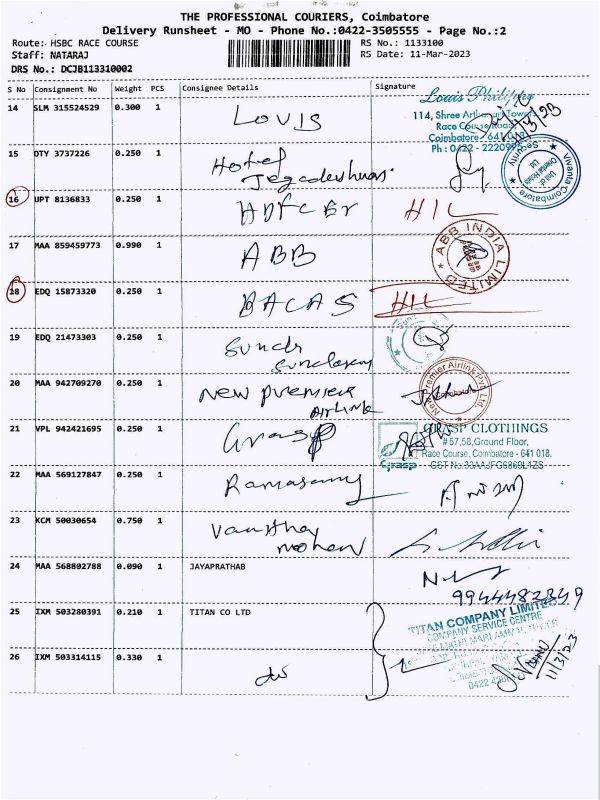 THE PROFESSIONAL COURIERS, Coimbatore
Delivery Runsheet - MO - Phone No.:0422-3505555 - Page No.:2
Route: HSBC RACE COURSE
RS No.: 1133100
Staff: NATARAJ
RS Date: 11-Mar-2023
DRS No.: DCJB113310002
S No Consignment No Weight PCS Consignee Details Signature
14 SLM 315524529 0.300 1 LOUIS
Louis Philippe
114, Shree Arthanari Towers
Race Course Road
Coimbatore - 641 018
Ph : 0422 - 2220995
15 DTY 3737226 0.250 1 Hotel
Jegadeshwari
Vivanta Coimbatore
Unit of
Oriental Hotels
Ltd.
Security
16 UPT 8136833 0.250 1 HDFC Er HIL
17 MAA 859459773 0.990 1 ABB
ABB INDIA LIMITED
18 EDQ 15873320 0.250 1 BACAS HIL
19 EDQ 21473303 0.250 1
20 MAA 942709270 0.250 1 New Premier
Airlink
New Premier Airlink Pvt. Ltd
Coimbatore
21 VPL 942421695 0.250 1 Grasp
Grasp
GRASP CLOTHINGS
#57,58,Ground Floor,
Race Course, Coimbatore - 641 018.
GST No.33AAJFG6869L1ZS
22 MAA 569127847 0.250 1 Ramasamy
23 KCM 50030654 0.750 1 Vanitha
mohan
24 MAA 568802788 0.090 1 JAYAPRATHAB
9944482849
25 IXM 503280391 0.210 1 TITAN CO LTD
TITAN COMPANY LIMITED
COMPANY SERVICE CENTRE
26 IXM 503314115 0.330 1 do
11/3/23